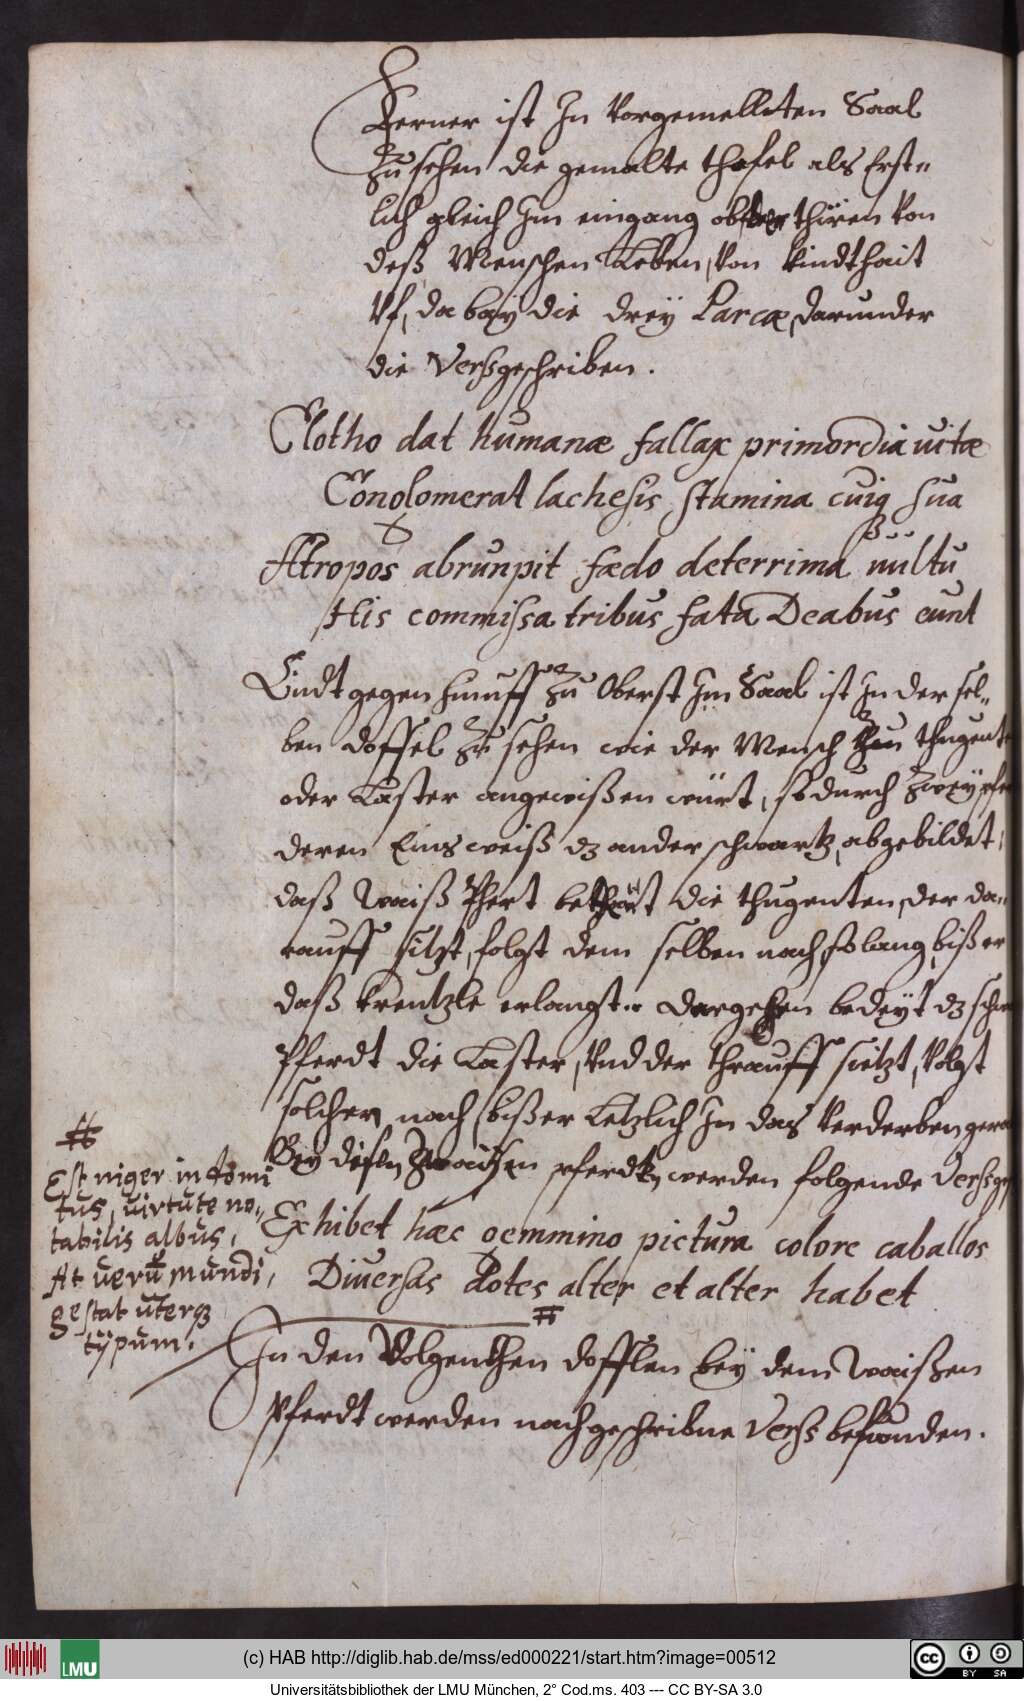 Ferner ist Jn Vorgemellten Saal
Zu sehen die gemalte thafel als Erst„
lich gleich Jm eingang ob der thüren Von
deß Menschen Leben, Von Kindthait
Vf, da beÿ die dreÿ Parcæ, darunder
die Verß geschriben.
Clotho dat humanæ fallax primordia vitæ
Conglomerat lachesis stamina cuiq sua
Atropos abrunpit fædo deterrima uultu
His commissa tribus fata Deabus eunt
Undt gegen hinuff Zu Oberst Jm Saal ist Jn der sel„
ben doffel Zu sehen wie der Mensch Zun thugent
oder Laster angewißen würt, so durch Zweÿ
deren Eins weiß dz ander schwartz, abgebildet,
daß Waiß Phert die thugenten, der da„
rauff sitzt, folgt dem selben nach, so lang, biß er
daß krentzle erlangt. dargegen bedeÿt dz
Pferdt die Laster, Vnd der thrauff sietzt, Volgt
solchen nach biß er Letzlich Jn das Verderben
Beÿ disen Zwaÿen pferdten werden folgende
Exhibet hæc gemmino pictura colore caballos
Diuersas dotes alter et alter habet
#
#
Est niger indomi
tus, uirtute no„
tabilis albus,
At uerū mundi,
gestat uterq
tÿpum.
Jn den Volgenthen dofflen beÿ dem Waißen
Pferdt werden nachgeschribne Verß befunden.
(c) HAB http://diglib.hab.de/mss/ed000221/start.htm?image=00512
LMU
cc BY SA
Universitätsbibliothek der LMU München, 2° Cod.ms. 403 --- CC BY-SA 3.0